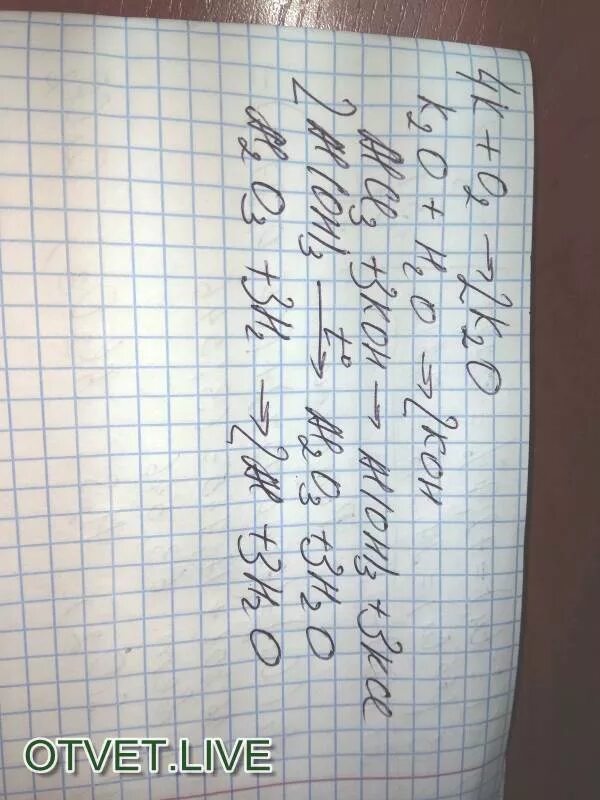 4K + O2 → 2K2O
K2O + H2O → 2KOH
AlCl3 + 3KOH → Al(OH)3 + 3KCl
2Al(OH)3 t° → Al2O3 + 3H2O
Al2O3 + 3H2 → 2Al + 3H2O
OTVET.LIVE